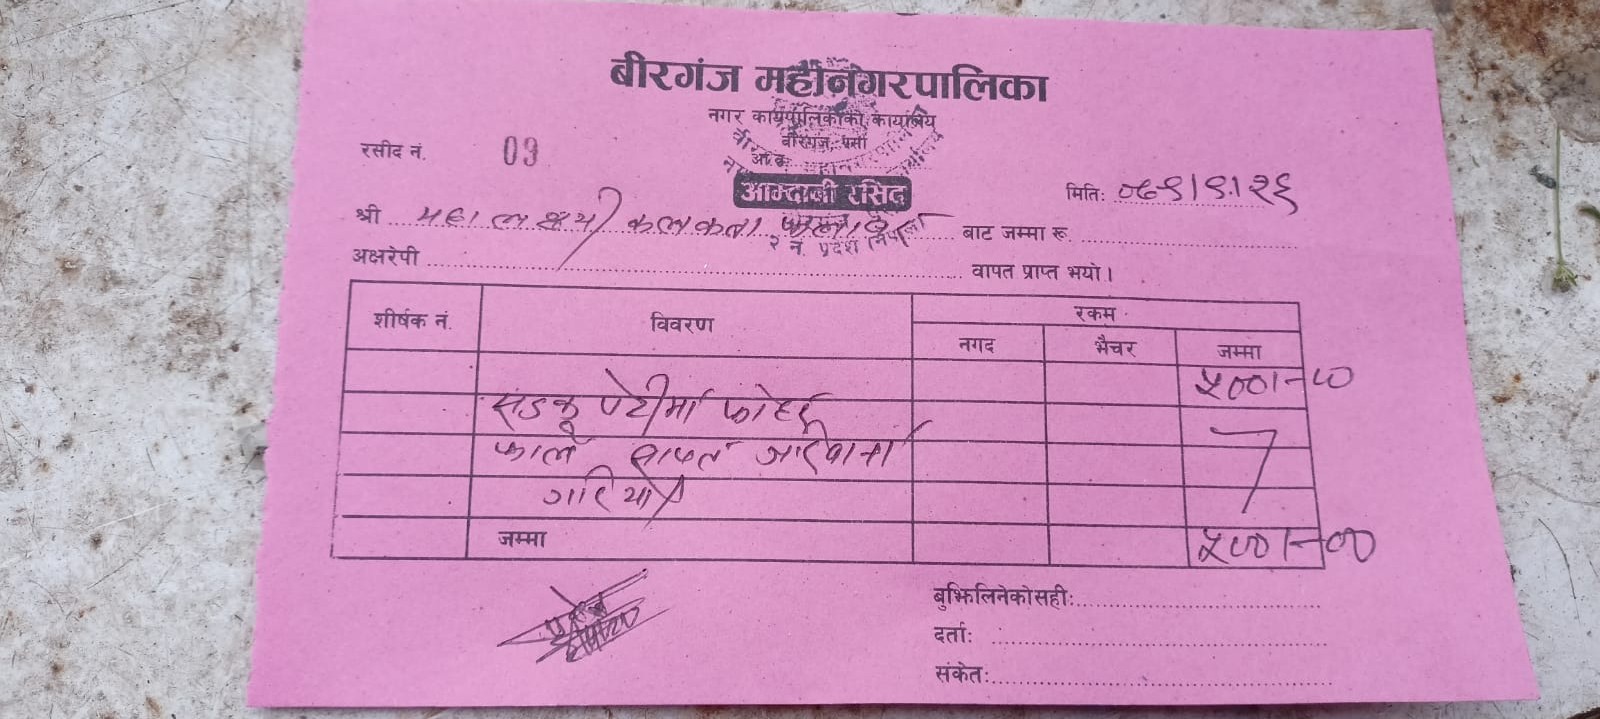 बीरगंज महानगरपालिका
नगर कार्यपालिकाको कार्यालय
वीरगंज, पर्सा
रसीद नं. 09
आ.व.
आम्दानी रसिद
मितिः ०७९।९।२६
श्री महालक्ष्मी कलकत्ता बाट जम्मा रू.
२ नं. प्रदेश
अक्षरेपी वापत प्राप्त भयो।
शीर्षक नं. विवरण रकम
नगद भैचर जम्मा
५००।-००
सडक पेटीमा फोहर
फाले वापत जरिवाना
गरियो
जम्मा ५००।-००
बुझिलिनेकोसहीः
दर्ताः
संकेतः